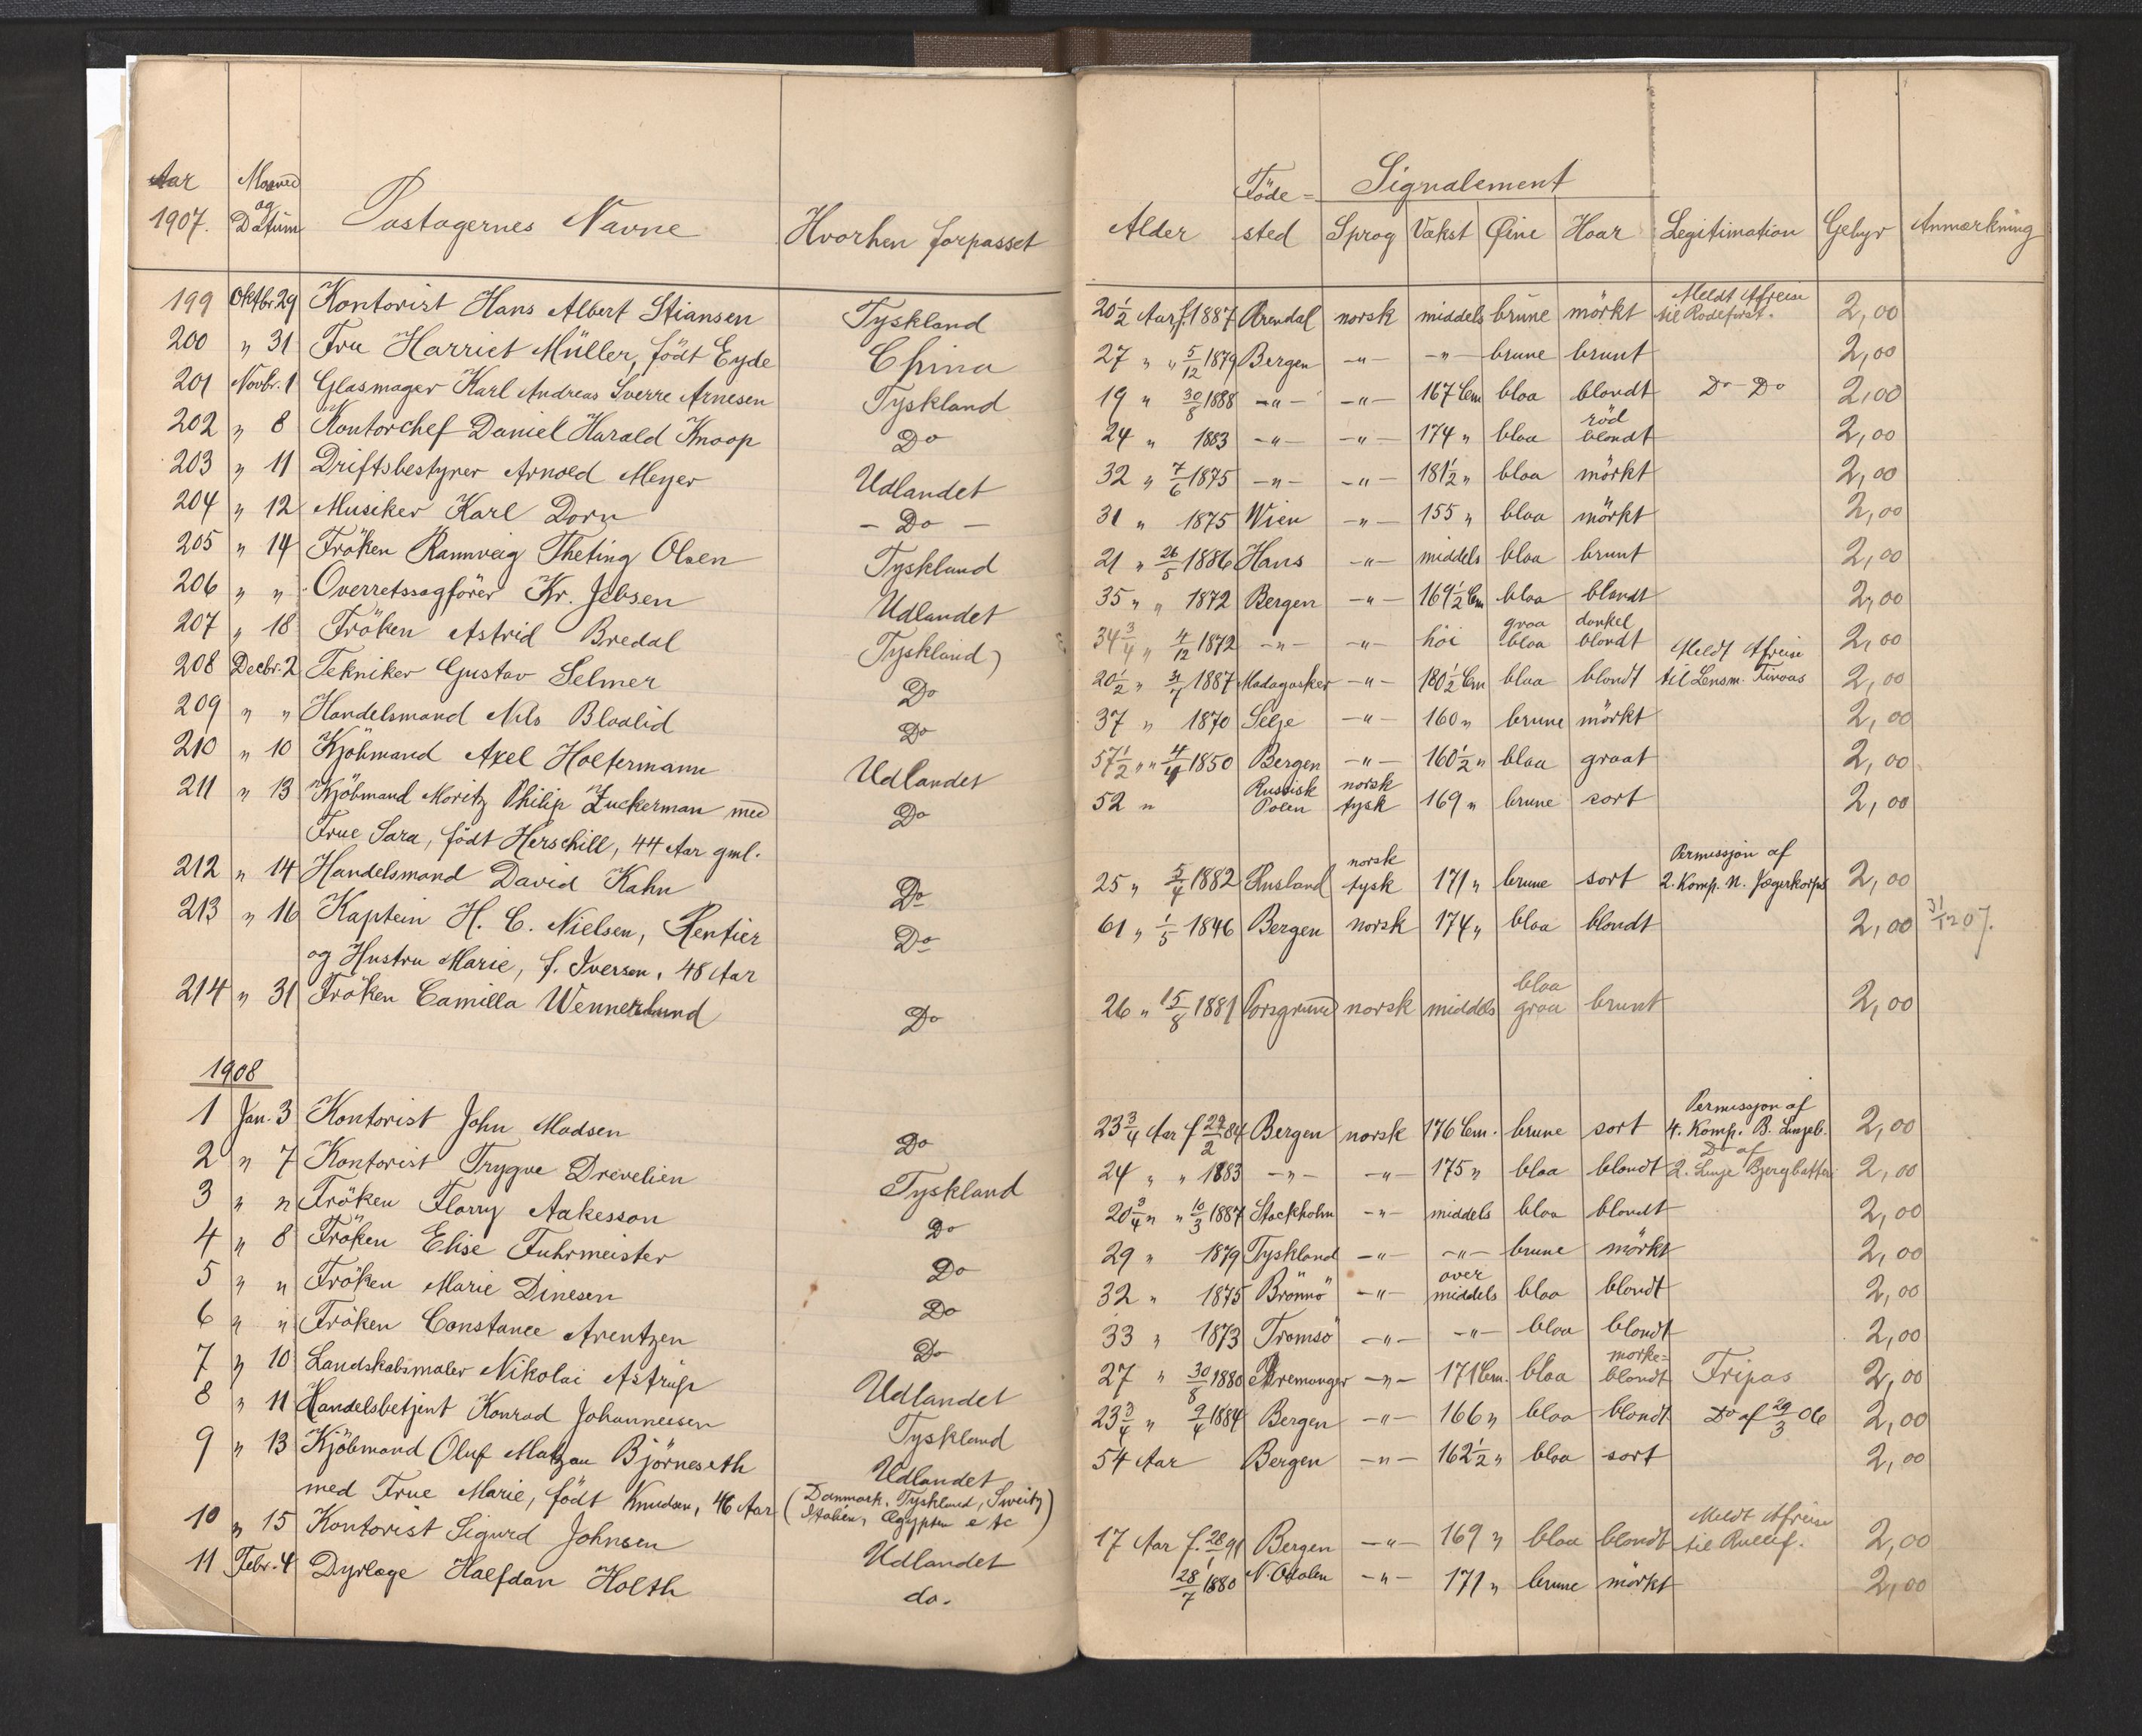 Aar 1907. Maaned og Datum Pastagernes Navne Hvorhen forpasset Alder Födested Signalement Sprog Vækst Øine Haar Legitimation Gebyr Anmærkning
199 Oktbr. 29 Kontorist Hans Albert Stiansen Tyskland 20 1/2 Aar f. 1887 Arendal norsk middels brune mörkt Meldt Afreise til Rodeforst. 2,00
200 " 31 Fru Harriet Müller, födt Eyde China 27 " " 5/12 1879 Bergen -"- -"- brune brunt 2,00
201 Novbr. 1 Glasmager Karl Andreas Sverre Arnesen Tyskland 19 " 30/8 1888 -"- -"- 167 Cm blaa blondt Do Do 2,00
202 " 8 Kontorchef Daniel Harald Knoop Do 24 " 1883 -"- -"- 174 " blaa röd blondt 2,00
203 " 11 Driftsbestyrer Arnold Meyer Udlandet 32 " 7/6 1875 -"- -"- 181 1/2 " blaa mörkt 2,00
204 " 12 Musiker Karl Dorn - Do - 31 " 1875 Wien -"- 155 " blaa mörkt 2,00
205 " 14 Fröken Rannveig Theting Olsen Tyskland 21 " 26/5 1886 Hans -"- middels blaa brunt 2,00
206 " " Overretssagförer Kr. Jebsen Udlandet 35 " " 1872 Bergen -"- 169 1/2 Cm blaa blondt 2,00
207 " 18 Fröken Astrid Bredal Tyskland 34 3/4 " 4/12 1872 -"- -"- höi graa blaa dunkel blondt 2,00
208 Decbr. 2 Tekniker Gustav Selmer Do 20 1/2 " 1887 Madagasker -"- 180 1/2 Cm blaa blondt Meldt Afreise til Lensm. 2,00
209 " " Handelsmand Nils Blaalid Do 37 " 1870 Selje -"- 160 " brune mörkt 2,00
210 " 10 Kjöbmand Axel Holtermann Udlandet 57 1/2 " " 4/4 1850 Bergen -"- 160 1/2 " blaa graat 2,00
211 " 13 Kjöbmand Moritz Philip Zuckerman med Do 52 " Russisk Polen norsk tysk 169 " brune sort 2,00
Frue Sara, födt Herschill, 44 Aar gml.
212 " 14 Handelsmand David Kahn Do 25 " 5/4 1882 Rusland norsk tysk 171 " brune sort Permissjon af 2. Komp. N. Jægerkorps 2,00
213 " 16 Kaptein H. C. Nielsen, Rentier Do 61 " 1/5 1846 Bergen norsk 174 " blaa blondt 2,00 31/12 07.
og Hustru Marie, f. Iversen, 48 Aar
214 " 31 Fröken Camilla Wennerlund Do 26 " 15/8 1881 Porsgrund norsk middels blaa graa brunt 2,00
1908
1 Jan. 3 Kontorist John Madsen Do 23 3/4 Aar f 29/2 84 Bergen norsk 176 Cm. brune sort Permissjon af 4. Komp. B. Linjeb. 2,00
2 " 7 Kontorist Trygve Drevelien Tyskland 24 " " 1883 -"- -"- 175 " blaa blondt Do af 2. Linje Bjergbatteri 2,00
3 " " Fröken Florry Aakesson Do 20 3/4 " " 10/3 1887 Stockholm -"- middels blaa blondt 2,00
4 " 8 Fröken Elise Fuhrmeister Do 29 " 1879 Tyskland -"- -"- brune mörkt 2,00
5 " " Fröken Marie Dinesen Do 32 " 1875 Brönnö -"- over middels blaa blondt 2,00
6 " " Fröken Constance Arentzen Do 33 " 1873 Tromsö -"- -"- blaa blondt 2,00
7 " 10 Landskabsmaler Nikolai Astrup Udlandet 27 " 30/8 1880 Bremanger -"- 171 Cm. blaa morke= blondt Fripas 2,00
8 " 11 Handelsbetjent Konrad Johannesen Tyskland 23 3/4 " 9/4 1884 Bergen -"- 166 " blaa blondt Do af 29/3 06 2,00
9 " 13 Kjöbmand Oluf Matzau Björneseth Udlandet 54 Aar Bergen -"- 162 1/2 " blaa sort 2,00
med Frue Marie, födt Knudsen, 46 Aar (Danmark, Tyskland, Sweitz, Italien, Ægypten etc)
10 " 15 Kontorist Sigurd Johnsen Udlandet 17 Aar f. 28/1 91 Bergen -"- 169 " blaa blondt Meldt Afreise til Rullef. 2,00
11 Febr. 4 Dyrlæge Halfdan Holth do. 28/7 1880 N. Odalen -"- 171 " brune mörkt 2,00